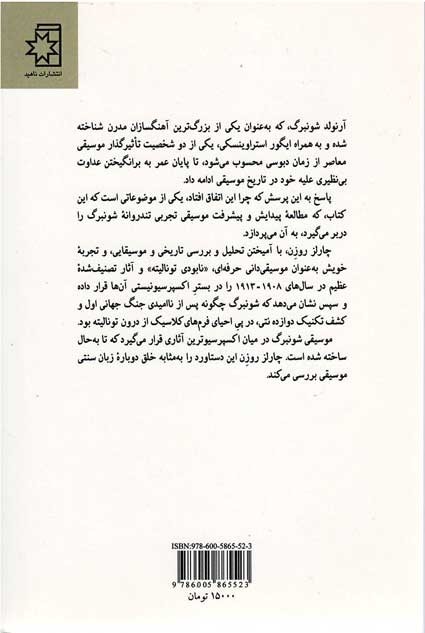 انتشارات ناهید
آرنولد شونبرگ، که به‌عنوان یکی از بزرگ‌ترین آهنگسازان مدرن شناخته
شده و به همراه ایگور استراوینسکی، یکی از دو شخصیت تأثیرگذار موسیقی
معاصر از زمان دبوسی محسوب می‌شود، تا پایان عمر به برانگیختن عداوت
بی‌نظیری علیه خود در تاریخ موسیقی ادامه داد.
پاسخ به این پرسش که چرا این اتفاق افتاد، یکی از موضوعاتی است که این
کتاب، که مطالعهٔ پیدایش و پیشرفت موسیقی تجربی تندروانهٔ شونبرگ را
دربر می‌گیرد، به آن می‌پردازد.
چارلز روزِن، با آمیختن تحلیل و بررسی تاریخی و موسیقایی، و تجربهٔ
خویش به‌عنوان موسیقی‌دانی حرفه‌ای، «نابودی تونالیته» و آثار تصنیف‌شدهٔ
عظیم در سال‌های ۱۹۰۸-۱۹۱۳ را در بسترِ اکسپرسیونیستی آن‌ها قرار داده
و سپس نشان می‌دهد که شونبرگ چگونه پس از ناامیدی جنگ جهانی اول و
کشف تکنیک دوازده نتی، در پیِ احیای فرم‌های کلاسیک از درون تونالیته بود.
موسیقی شونبرگ در میان اکسپرسیوترین آثاری قرار می‌گیرد که تا به‌حال
ساخته شده است. چارلز روزِن این دستاورد را به‌مثابه خلق دوبارهٔ زبان سنتی
موسیقی بررسی می‌کند.
ISBN:978-600-5865-52-3
9 786005 865523
۱۵۰۰۰ تومان